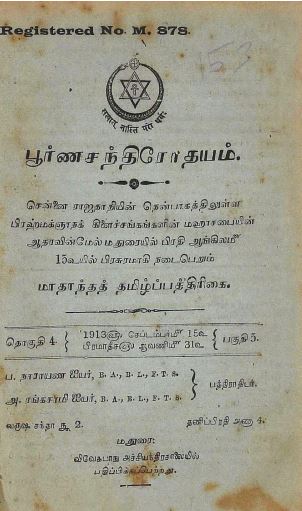 Registered No. M. 878.
153
பூர்ணசந்திரோதயம்.
சென்னை ராஜதானியின் தென்பாகத்திலுள்ள
பிரஹ்மக்ஞானக் கிளைச்சங்கங்களின் மஹாசபையின்
ஆதரவின்மேல் மதுரையில் பிரதி ஆங்கிலமீ
15உயில் பிரசுரமாகி நடைபெறும்
மாதாந்தத் தமிழ்ப்பத்திரிகை.
தொகுதி 4. { 1913ளு செப்டம்பர்மீ 15உ } பகுதி 5.
பிரமாதீசளு ஆவணிமீ 31உ
ப. நாராயண ஐயர், B. A., B. L., F. T. S. } பத்திராதிபர்.
அ. ரங்கசாமி ஐயர், B. A., B. L., F. T. S.
வருஷ சந்தா ரூ 2. தனிப்பிரதி அணா 4.
மதுரை:
விவேகபாநு அச்சியந்திரசாலையில்
பதிப்பிக்கப்பெற்றது.